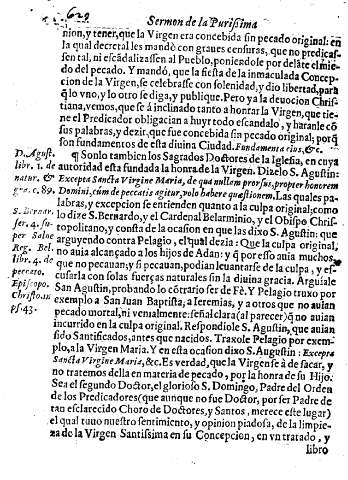 629
Sermon de la Purissima
nion, y tener, que la Virgen era concebida sin pecado original: en
la qual decretal les mandò con graues censuras, que no predicas-
sen tal, ni escãdalizassen al Pueblo, poniendole por delãte el mie-
do del pecado. Y mandó, que la fiesta de la inmaculada Concep-
cion de la Virgen, se celebrasse con solenidad, y dio libertad, para
q̃ lo vno, y lo otro se diga, y publique. Pero ya la deuocion Chris-
tiana, vemos, que se à inclinado tanto a honrar la Virgen, que tie-
ne el Predicador obligacion a huyr todo escãdalo, y haranle cõ
sus palabras, y dezir, que fue concebida sin pecado original; porq̃
son fundamentos de esta diuina Ciudad. Fundamenta eius, &c.
¶ Sonlo tambien los Sagrados Doctores de la Iglesia, en cuya
autoridad esta fundada la honra de la Virgen. Dizelo S. Agustin:
Excepta Sancta Virgine Maria, de qua nullam prorsus, propter honorem
Domini, cùm de peccatis agitur, volo habere questionem. Las quales pa-
labras, y excepcion se entienden quanto a la culpa original; como
lo dize S. Bernardo, y el Cardenal Belarminio, y el Obispo Chris-
topolitano, y consta de la ocasion en que las dixo S. Agustin: que
arguyendo contra Pelagio, el qual dezia: Que la culpa original,
no auia alcançado a los hijos de Adan: y q̃ por esso auia muchos,
que no pecauan; y si pecauan, podian leuantarse de la culpa, y es-
cusarla con solas fuerças naturales sin la diuina gracia. Arguiale
San Agustin, probando lo cõtrario ser de Fè. Y Pelagio truxo por
exemplo a San Juan Baptista, a Ieremias, y a otros que no auian
pecado mortal, ni venialmente: señal clara (al parecer) q̃ no auian
incurrido en la culpa original. Respondiole S. Agustin, que auian
sido Santificados, antes que nacidos. Traxole Pelagio por exem-
plo, a la Virgen Maria. Y en esta ocasion dixo S. Agustin: Excepta
Sancta Virgine Maria, &c. Es verdad, que la Virgen se à de sacar, y
no tratemos della en materia de pecado, por la honra de su Hijo.
Sea el segundo Doctor, el glorioso S. Domingo, Padre del Orden
de los Predicadores (que aunque no fue Doctor, por ser Padre de
tan esclarecido Choro de Doctores, y Santos, merece este lugar)
el qual tauo nuestro sentimiento, y opinion piadosa, de la limpie-
za de la Virgen Santissima en su Concepcion, en vn tratado, y
libro
D. Agust.
lir. 1. de
natur. &
gra. c. 89.
S. Bernar.
ser. 4. su-
per Salue
Reg. Bel.
libr. 4. de
peccato.
Episcopo.
Christo. in
ps. 43.